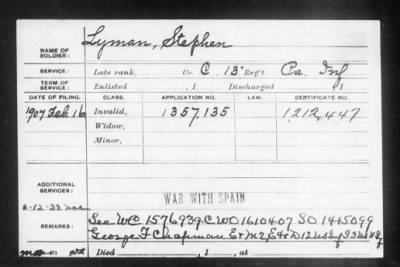 NAME OF SOLDIER: Lyman, Stephen
SERVICE: Late rank, Co. C, 13" Reg't Pa. Inf
TERM OF SERVICE: Enlisted , 1 Discharged , 1
DATE OF FILING. CLASS. APPLICATION NO. LAW. CERTIFICATE NO.
1907 Feb. 16 Invalid, 1357,135 1,212,447
Widow,
Minor,
ADDITIONAL SERVICES:
WAR WITH SPAIN
See WC 1576939 C WO 1610407 SO 1415099
REMARKS: George F Chapman
Died , 1 , at